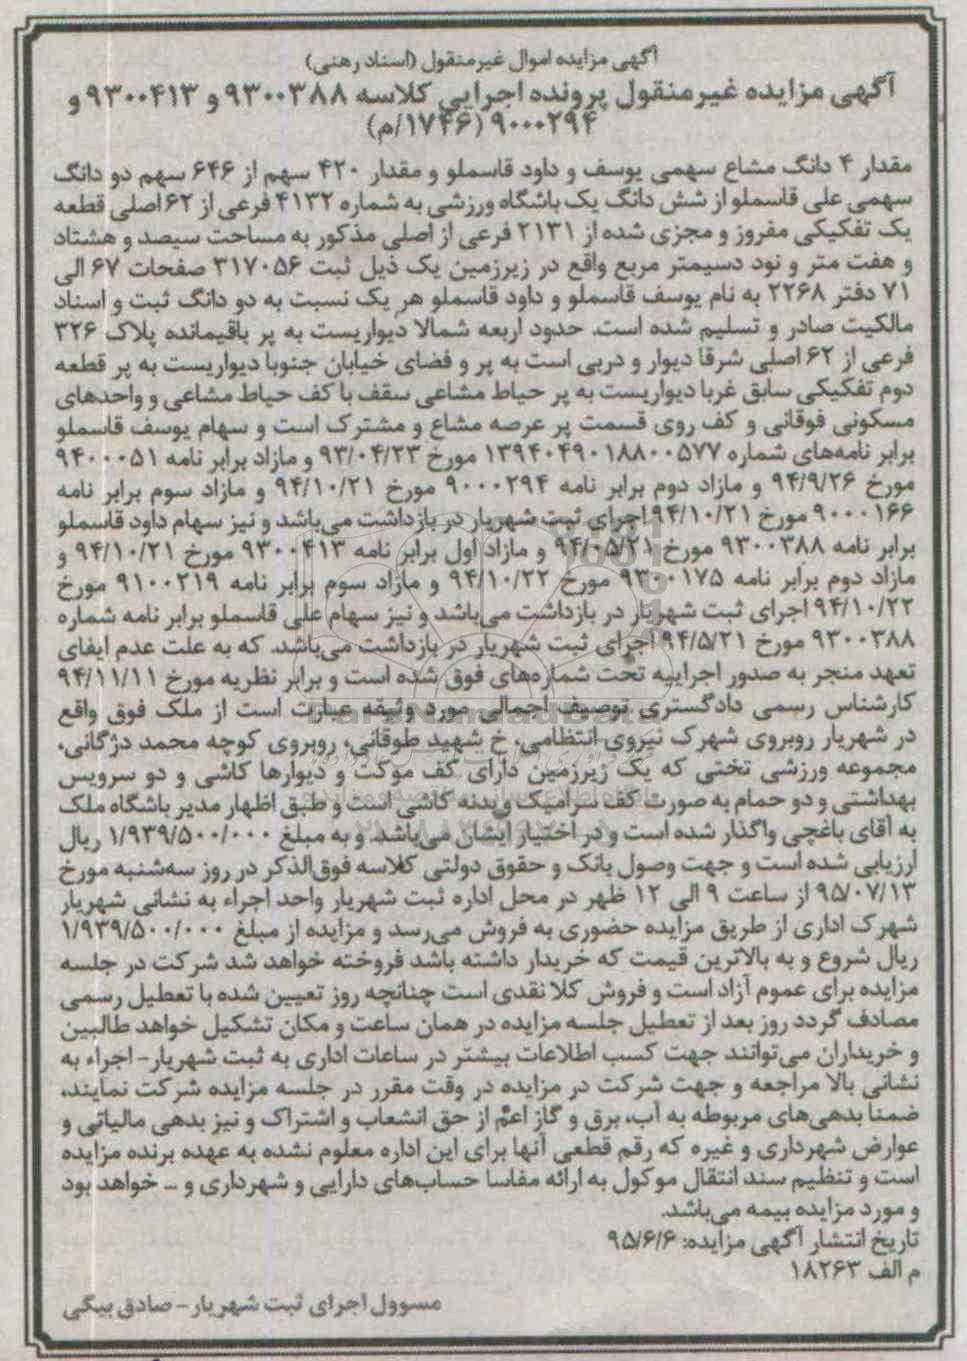 آگهی مزایده اموال غیرمنقول (اسناد رهنی)
آگهی مزایده غیرمنقول پرونده اجرایی کلاسه ۹۳۰۰۳۸۸ و ۹۳۰۰۴۱۳ و
۹۰۰۰۲۹۴ (۱۷۴۶/م)
مقدار ۴ دانگ مشاع سهمی یوسف و داود قاسملو و مقدار ۴۲۰ سهم از ۶۴۶ سهم دو دانگ
سهمی علی قاسملو از شش دانگ یک باشگاه ورزشی به شماره ۴۱۳۲ فرعی از ۶۲ اصلی قطعه
یک تفکیکی مفروز و مجزی شده از ۲۱۳۱ فرعی از اصلی مذکور به مساحت سیصد و هشتاد
و هفت متر و نود دسیمتر مربع واقع در زیرزمین یک ذیل ثبت ۳۱۷۰۵۶ صفحات ۶۷ الی
۷۱ دفتر ۲۲۶۸ به نام یوسف قاسملو و داود قاسملو هر یک نسبت به دو دانگ ثبت و اسناد
مالکیت صادر و تسلیم شده است. حدود اربعه شمالا دیواریست به پر باقیمانده پلاک ۳۲۶
فرعی از ۶۲ اصلی شرقا دیوار و دربی است به پر و فضای خیابان جنوبا دیواریست به پر قطعه
دوم تفکیکی سابق غربا دیواریست به پر حیاط مشاعی سقف با کف حیاط مشاعی و واحدهای
مسکونی فوقانی و کف روی قسمت پر عرصه مشاع و مشترک است و سهام یوسف قاسملو
برابر نامه‌های شماره ۱۳۹۴۰۴۹۰۱۸۸۰۰۵۷۷ مورخ ۹۳/۰۴/۲۳ و مازاد برابر نامه ۹۴۰۰۰۵۱
مورخ ۹۴/۹/۲۶ و مازاد دوم برابر نامه ۹۰۰۰۲۹۴ مورخ ۹۴/۱۰/۲۱ و مازاد سوم برابر نامه
۹۰۰۰۱۶۶ مورخ ۹۴/۱۰/۲۱ اجرای ثبت شهریار در بازداشت می‌باشد و نیز سهام داود قاسملو
برابر نامه ۹۳۰۰۳۸۸ مورخ ۹۴/۰۵/۲۱ و مازاد اول برابر نامه ۹۳۰۰۴۱۳ مورخ ۹۴/۱۰/۲۱ و
مازاد دوم برابر نامه ۹۳۰۰۱۷۵ مورخ ۹۴/۱۰/۲۲ و مازاد سوم برابر نامه ۹۱۰۰۲۱۹ مورخ
۹۴/۱۰/۲۲ اجرای ثبت شهریار در بازداشت می‌باشد و نیز سهام علی قاسملو برابر نامه شماره
۹۳۰۰۳۸۸ مورخ ۹۴/۵/۲۱ اجرای ثبت شهریار در بازداشت می‌باشد. که به علت عدم ایفای
تعهد منجر به صدور اجراییه تحت شماره‌های فوق شده است و برابر نظریه مورخ ۹۴/۱۱/۱۱
کارشناس رسمی دادگستری توصیف اجمالی مورد وثیقه عبارت است از ملک فوق واقع
در شهریار روبروی شهرک نیروی انتظامی، خ شهید طوقانی، روبروی کوچه محمد دژگانی،
مجموعه ورزشی تختی که یک زیرزمین دارای کف موکت و دیوارها کاشی و دو سرویس
بهداشتی و دو حمام به صورت کف سرامیک و بدنه کاشی است و طبق اظهار مدیر باشگاه ملک
به آقای باغچی واگذار شده است و در اختیار ایشان می‌باشد. و به مبلغ ۱/۹۳۹/۵۰۰/۰۰۰ ریال
ارزیابی شده است و جهت وصول بانک و حقوق دولتی کلاسه فوق‌الذکر در روز سه‌شنبه مورخ
۹۵/۰۷/۱۳ از ساعت ۹ الی ۱۲ ظهر در محل اداره ثبت شهریار واحد اجراء به نشانی شهریار
شهرک اداری از طریق مزایده حضوری به فروش می‌رسد و مزایده از مبلغ ۱/۹۳۹/۵۰۰/۰۰۰
ریال شروع و به بالاترین قیمت که خریدار داشته باشد فروخته خواهد شد شرکت در جلسه
مزایده برای عموم آزاد است و فروش کلا نقدی است چنانچه روز تعیین شده با تعطیل رسمی
مصادف گردد روز بعد از تعطیل جلسه مزایده در همان ساعت و مکان تشکیل خواهد طالبین
و خریداران می‌توانند جهت کسب اطلاعات بیشتر در ساعات اداری به ثبت شهریار- اجراء به
نشانی بالا مراجعه و جهت شرکت در مزایده در وقت مقرر در جلسه مزایده شرکت نمایند،
ضمنا بدهی‌های مربوطه به آب، برق و گاز اعم از حق انشعاب و اشتراک و نیز بدهی مالیاتی و
عوارض شهرداری و غیره که رقم قطعی آنها برای این اداره معلوم نشده به عهده برنده مزایده
است و تنظیم سند انتقال موکول به ارائه مفاسا حساب‌های دارایی و شهرداری و ... خواهد بود
و مورد مزایده بیمه می‌باشد.
تاریخ انتشار آگهی مزایده: ۹۵/۶/۶
م الف ۱۸۲۶۳
مسوول اجرای ثبت شهریار- صادق بیگی